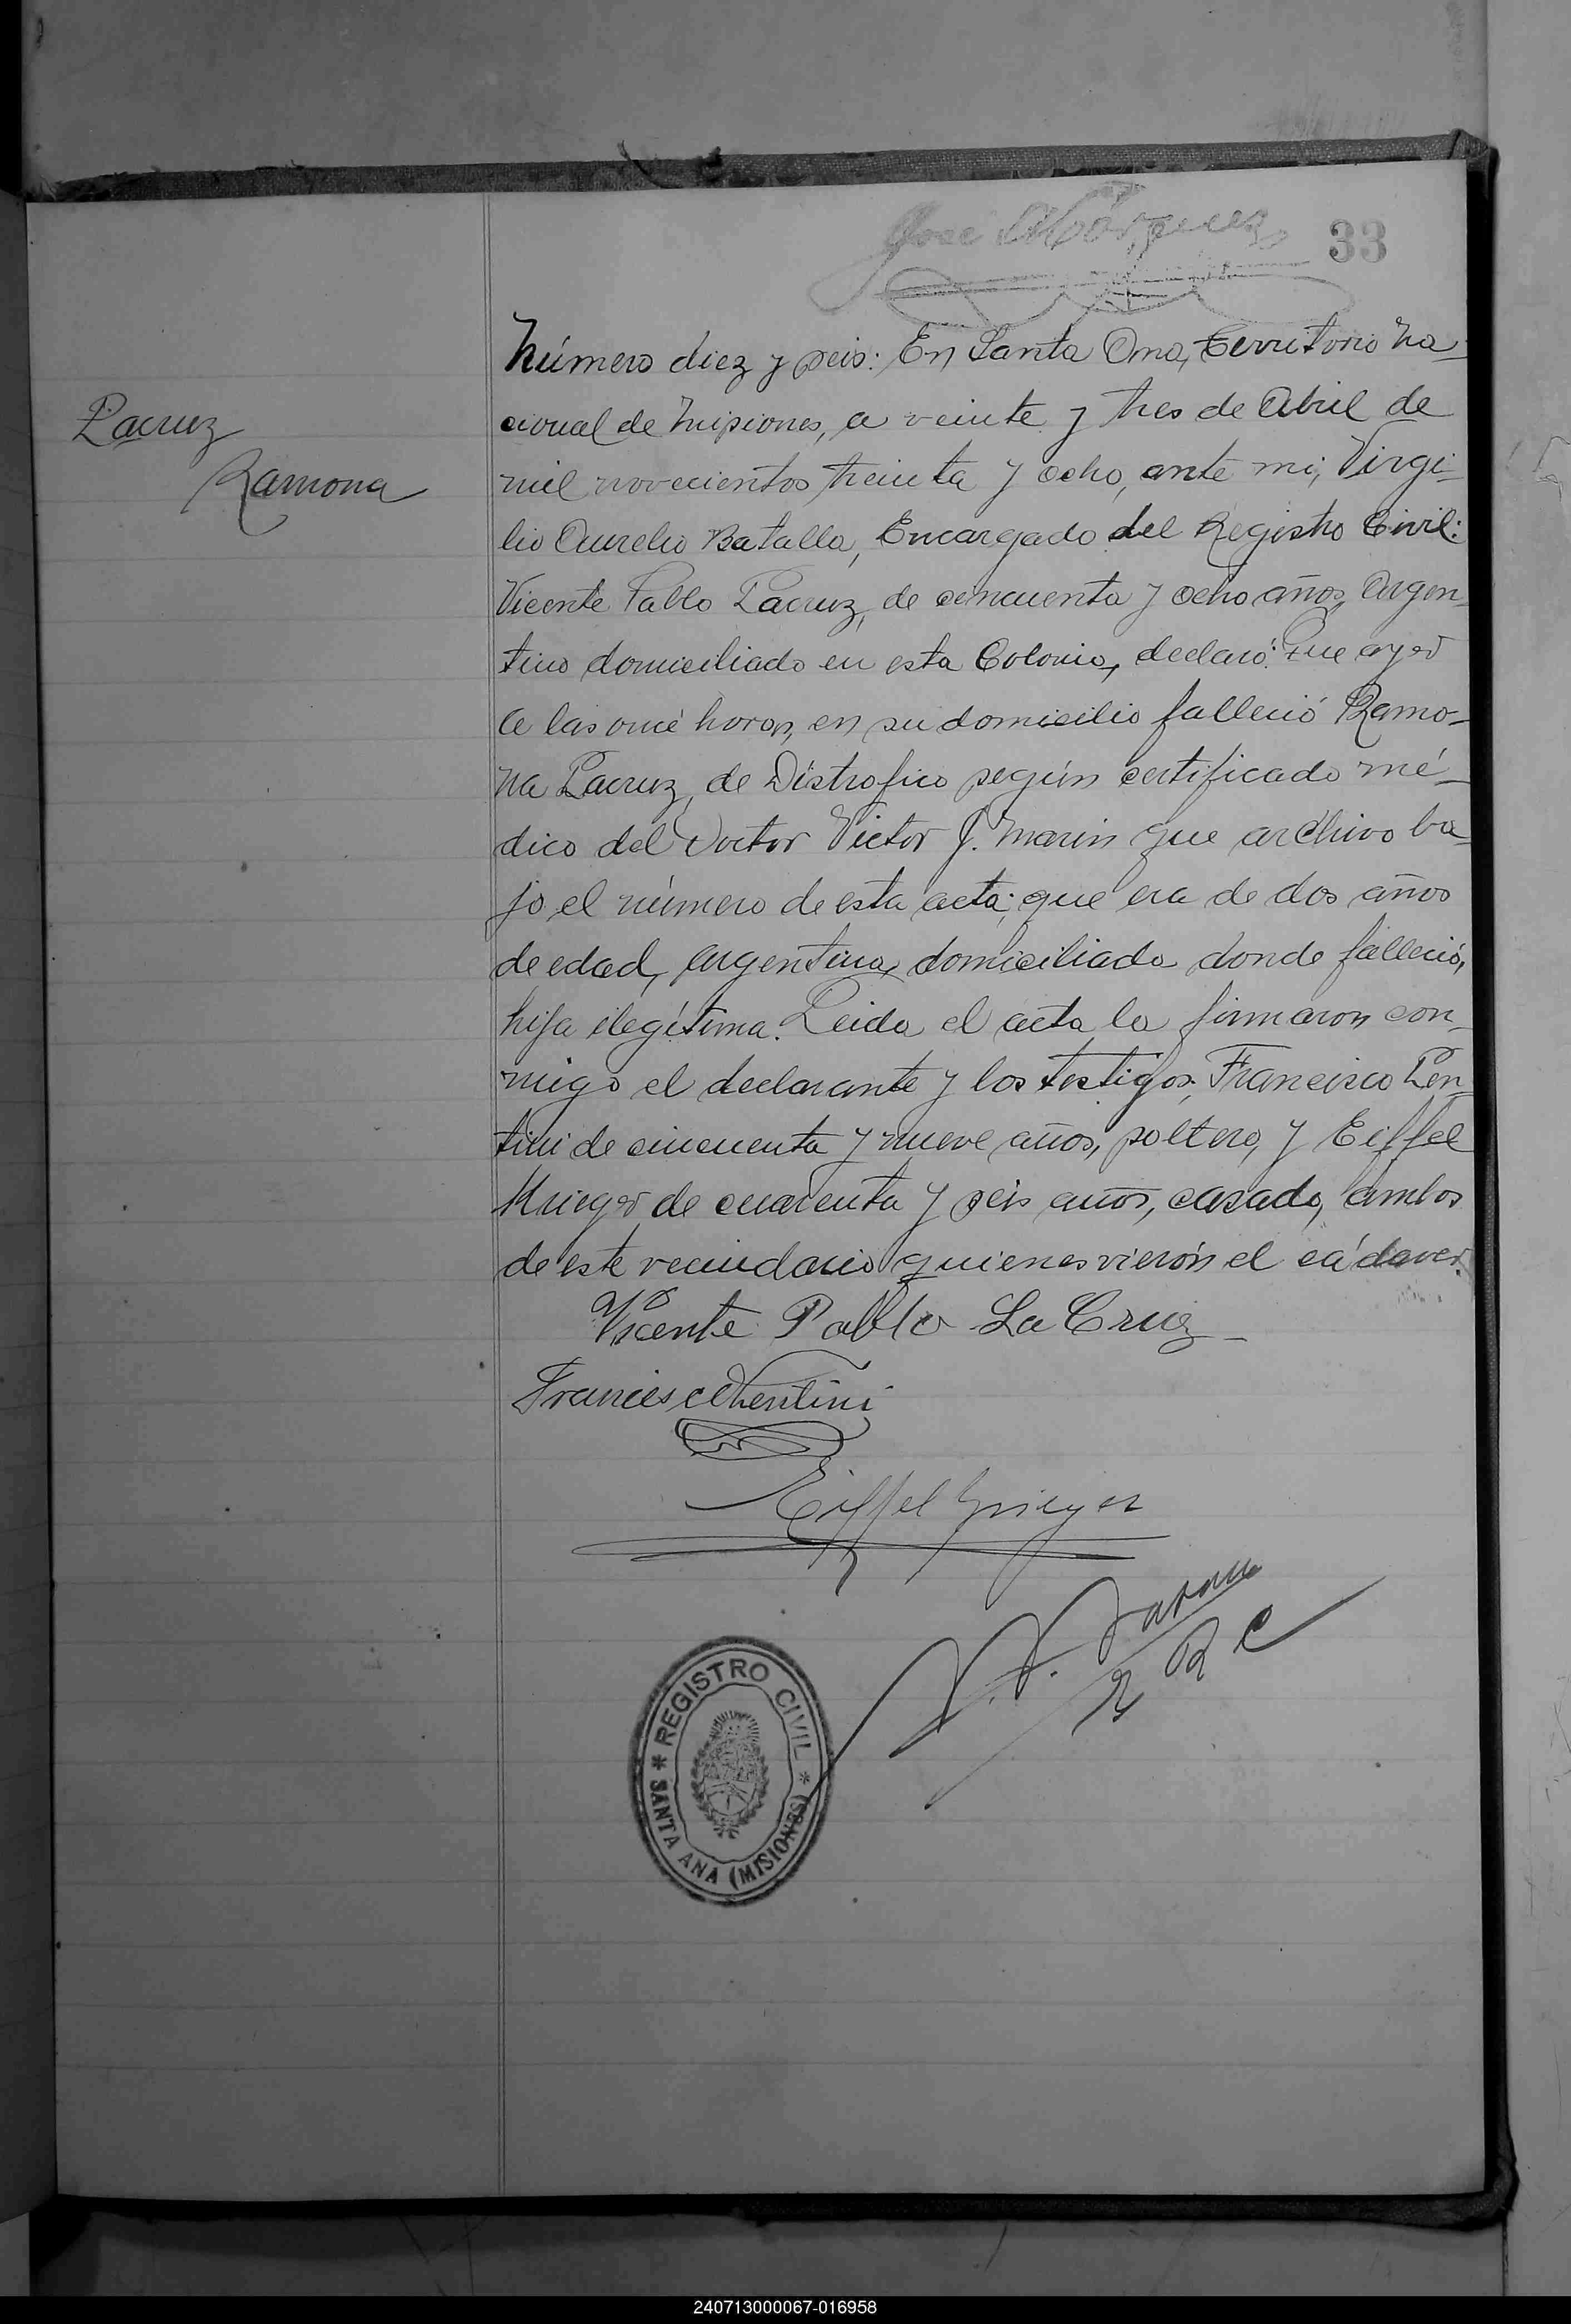 José
33
Lacruz
Ramona
Número diez y seis: En Santa Ana, Territorio Na-
cional de Misiones, a veinte y tres de Abril de
mil novecientos treinta y ocho, ante mi, Virgi-
lio Aurelio Batalla, Encargado del Registro Civil:
Vicente Pablo Lacruz, de cincuenta y ocho años, Argen-
tino domiciliado en esta Colonia, declaró: Que ayer
a las once horas, en su domicilio falleció Ramo-
na Lacruz, de Distrofico según certificado mé-
dico del Doctor Victor J. Marin que archivo ba-
jo el número de esta acta; que era de dos años
de edad, argentina, domiciliada donde falleció,
hija ilegítima. Leida el acta la firmaron con-
migo el declarante y los testigos, Francisco Len-
tini de cincuenta y nueve años, soltero, y Eiffel
Krieger, de cuarenta y seis años, casado, ambos
de este vecindario quienes vierón el cádaver.
Vicente Pablo La Cruz
Eiffel Krieger
E R C
* REGISTRO CIVIL *
SANTA ANA (MISIONES)
240713000067-016958